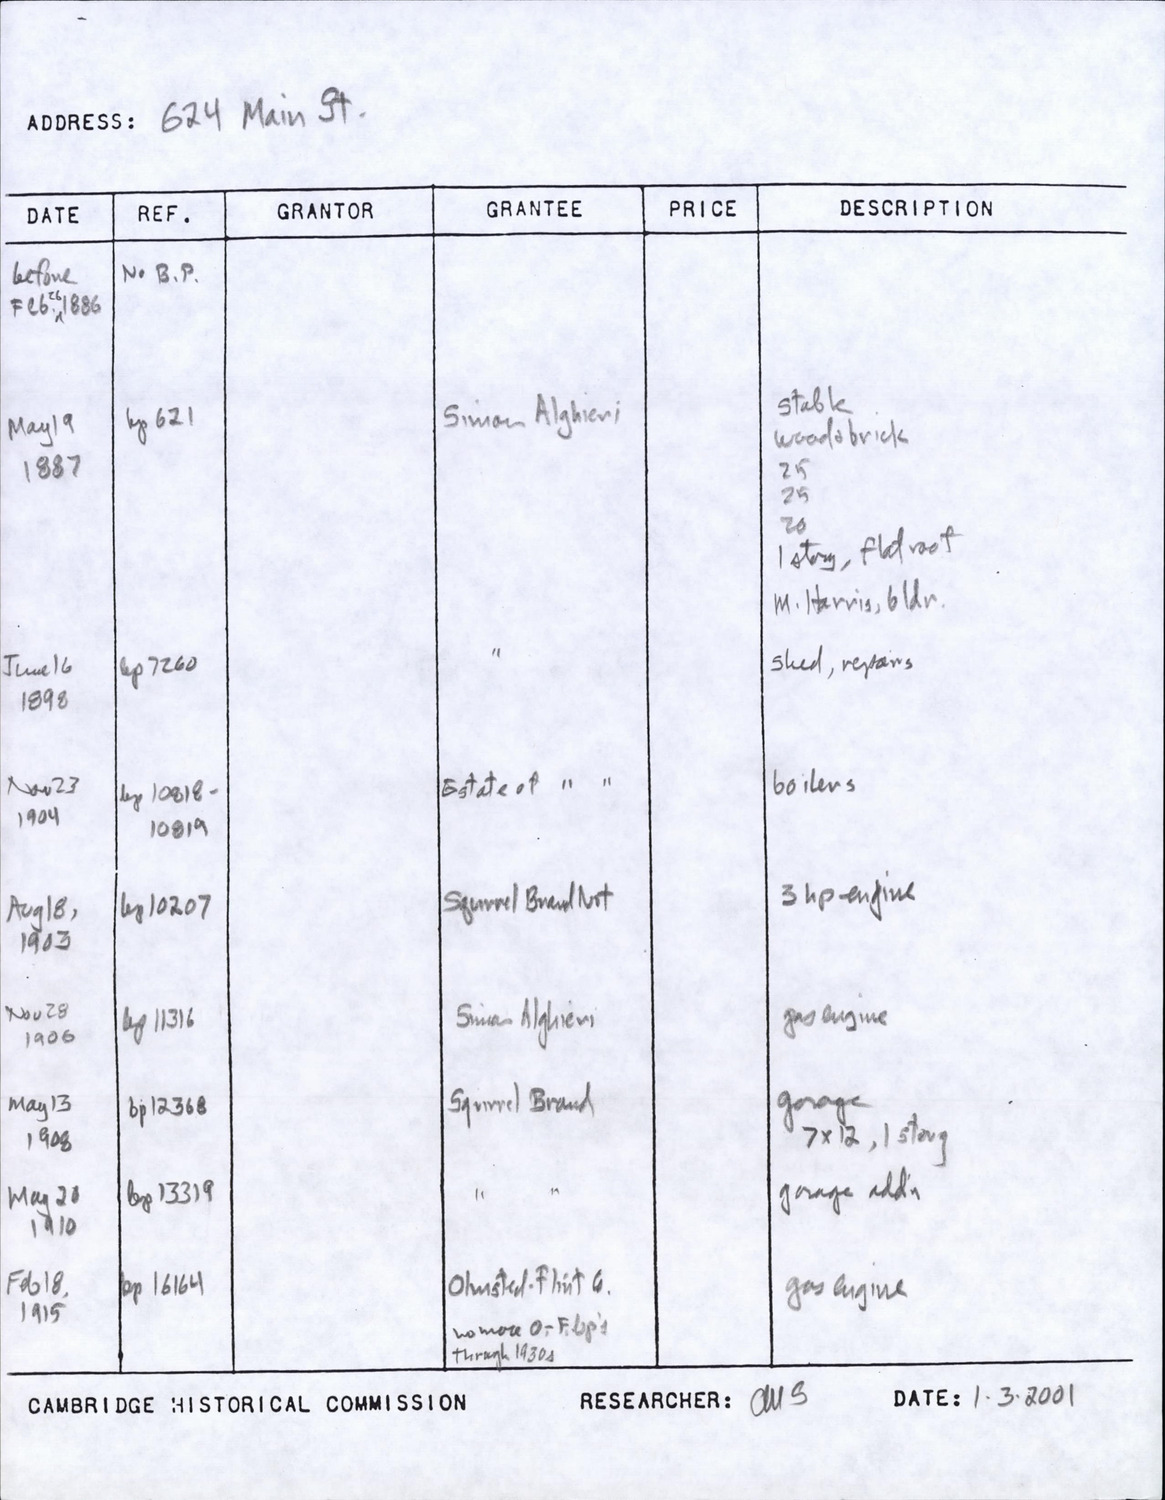 ADDRESS: 624 Main St.
DATE REF. GRANTOR GRANTEE PRICE DESCRIPTION
before No B.P.
Feb. 26 1886
May 19 bp 621 Simon Alghieri stable
1887 wood & brick
25
25
20
1 story, flat roof
M. Harris, bldr.
June 16 bp 7260 " shed, repairs
1898
Nov 23 bp 10818- Estate of " " boilers
1904 10819
Aug 18, bp 10207 Squirrel Brand Nut 3 hp-engine
1903
Nov 28 bp 11316 Simon Alghieri gas engine
1906
May 13 bp 12368 Squirrel Brand garage
1908 7x12, 1 story
May 20 bp 13319 " " garage add'n
1910
Feb 18, bp 16164 Olmsted-Flint Co. gas engine
1915
no more O-F bp's
through 1930s
CAMBRIDGE HISTORICAL COMMISSION RESEARCHER: DATE: 1.3.2001